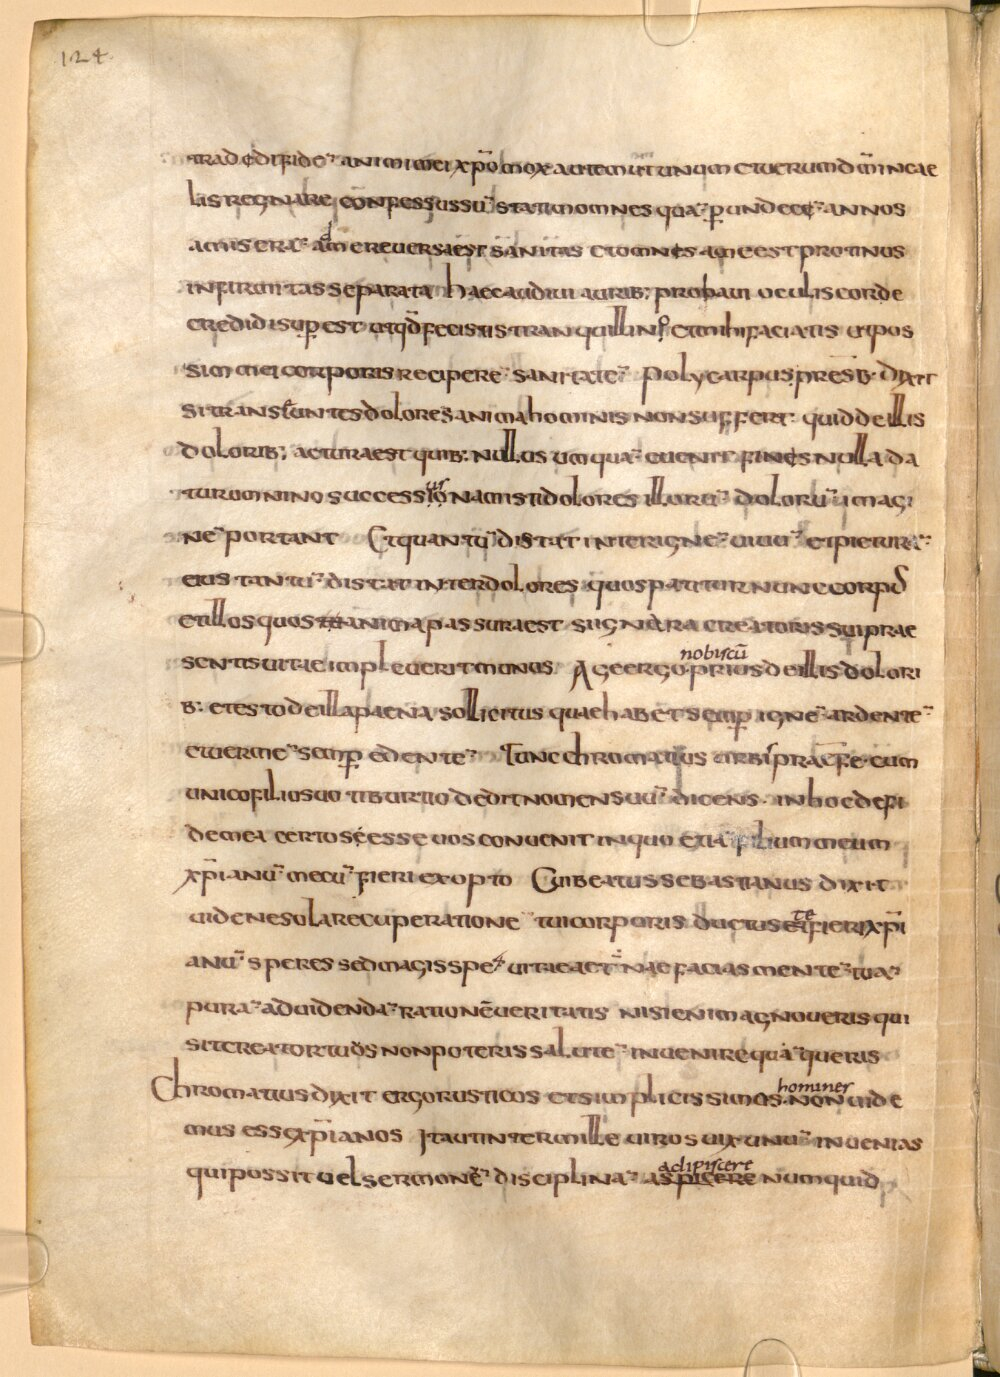 124
tradedi fidē animi mei xp̄o mox autem ut unum et uerum dm̄ in cae
lis regnare confessus sū statim omnes quā p̱ undecē annos
amiserā ad me reuersa est sanitas et omnes a me est protinus
infirmitas separata haec audiui aurib; probaui oculis corde
credidi sup̱ est ut qđ fecistis tranquillino et mihi faciatis ut pos
sim mei corporis reciperē sanitatē Polycarpus presb· dixit
si transeuntes dolores anima hominis non suffert· quid de illis
dolorib; actura est quib; nullus umquā euenit fines nulla da
tur omnino successio nam isti dolores illorū dolorū imagi
nē portant Et quantū distat inter ignē uiuū et picturā
eius tantū distat inter dolores quos patitur nunc corpus
et illos quos anima passura est si ignara creatoris sui prae
sentis uitae impleuerit munus Age ergo nobiscū prius de illis dolori
b; et esto de illa paena sollicitus quae habet semp̱ ignē ardentē
et uermē semp̱ edentē Tunc chromatius urbis praef· e· cum
unico filio suo tiburtio dedit nomen suū dicens· in hoc de fi
de mea certos esse uos conuenit in quo etiā filium meum
xp̄ianū mecū fieri exopto Cui beatus sebastianus dixit
uide ne sola recuperationē tui corporis ductus te fieri xp̄i
anū speres sed magis spē uitae aet̄nae facias mentē tuā
purā ad uidendā rationē ueritatis nisi enim agnoueris qui
sit creator tuus non poteris salutē inuenire quā queris
Chromatius dixit ergo rusticos et simplicissimos homines non uide
mus esse xp̄ianos Ita ut inter mille uiros uix unū inuenias
qui possit uel sermonē disciplinā adipiscere numquid